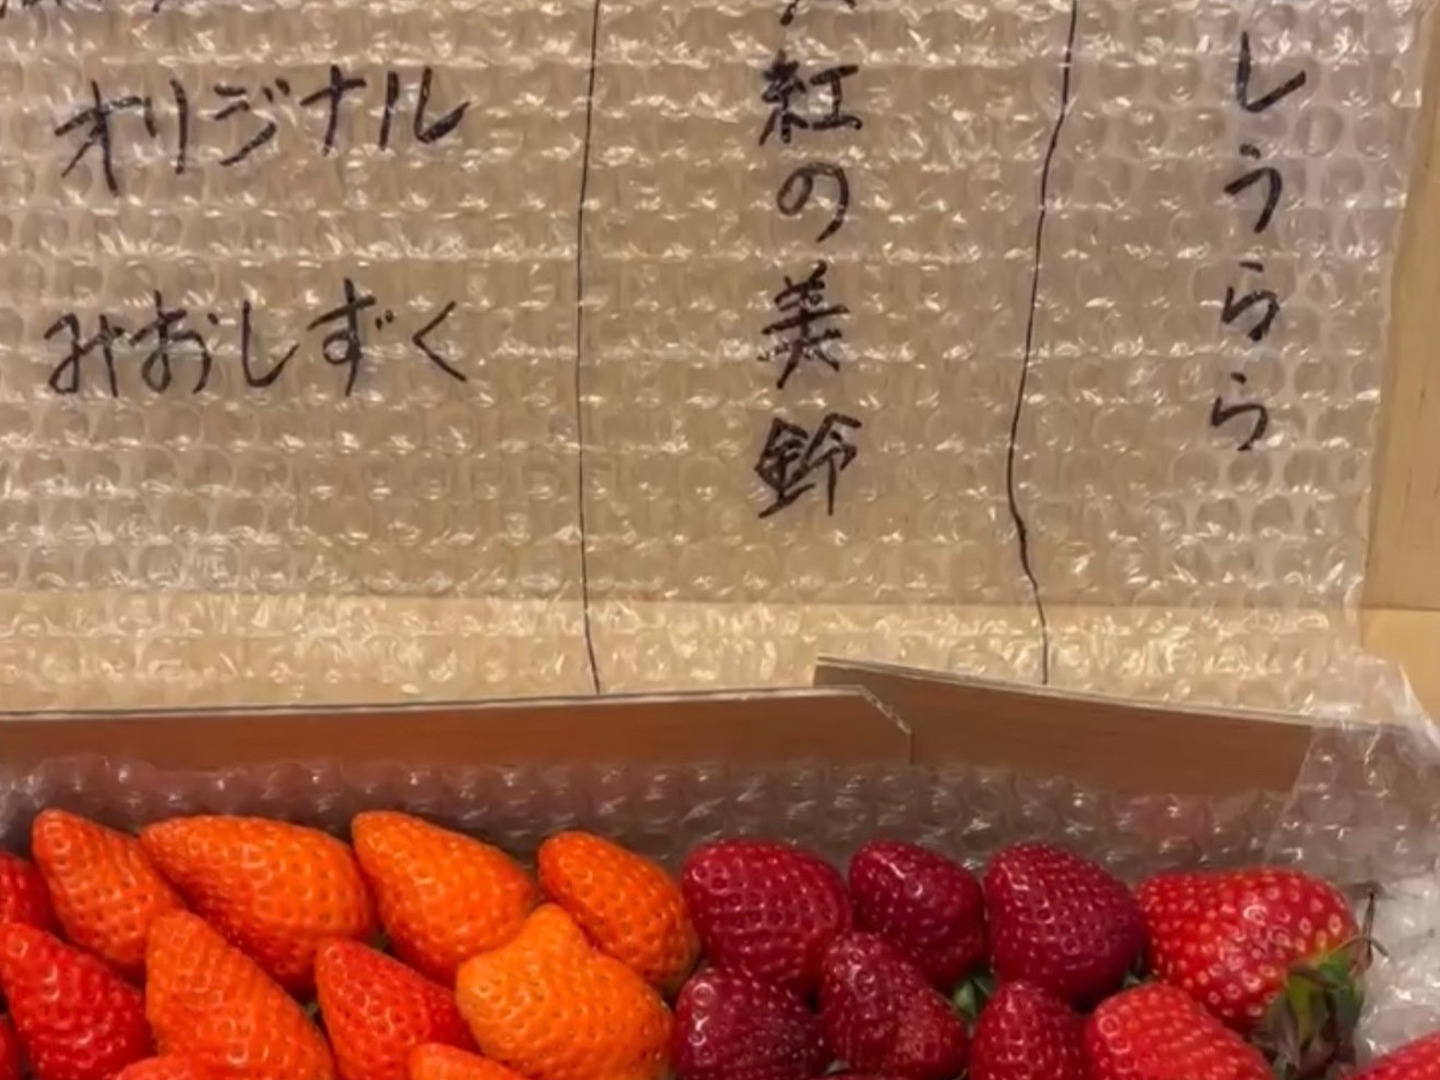 オリジナル
みおしずく
紅の美鈴
しうらら